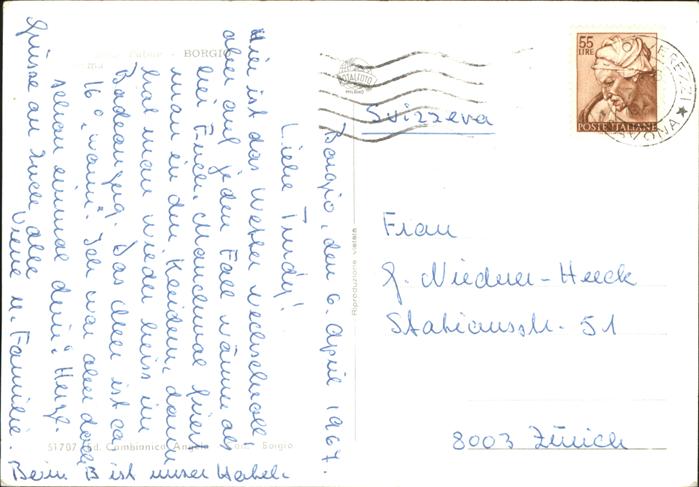 BORGIO
Borgio, den 6. April 1967.
Liebe Trudy!
Hier ist das Wetter wechselvoll,
aber auf jeden Fall wärmer als
bei Euch. Manchmal friert
man in den Kleidern, dann
hat man wieder heiss im
Badeanzug. Das Meer ist ca
16° „warm". Ich war aber doch
schon einmal drin. Herzl.
Grüsse an Euch alle
Vrene u. Familie.
Beim B ist unser Hotel.
51707 Ed. Cambianica Angela Borgio
Riproduzione vietata
ITALFOTO
MILANO
55
LIRE
POSTE ITALIANE
SAVONA
Svizzera
Frau
Niederer-Heeck
Stationsstr. 51
8003 Zürich